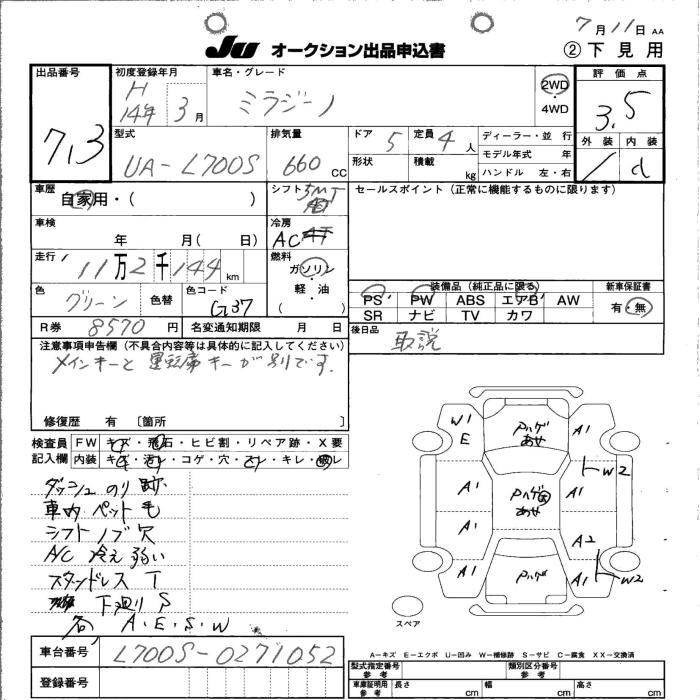 7月11日 AA
JU オークション出品申込書 ②下見用
出品番号 初度登録年月 車名・グレード 2WD 評価点
H 14年 3月 ミラジーノ 4WD 3.5
713 型式 排気量 ドア 5 定員 4人 ディーラー・並行 外装 内装
UA-L700S 660cc 形状 積載 kg モデル年式 年 / d
ハンドル 左・右
車歴 自家用・( ) シフト 5MT セールスポイント(正常に機能するものに限ります)
車検 年 月( 日) 冷房 AC
走行 11万2千144km 燃料 ガソリン 軽・油 ( )
装備品(純正品に限る) 新車保証書
色 グリーン 色替 色コード G37 PS PW ABS エアB AW 有・無
SR ナビ TV カワ
R券 8570円 名変通知期限 月 日 後日品 取説
注意事項申告欄(不具合内容等は具体的に記入してください)
メインキーと運転席キーが別です.
修復歴 有 [箇所 ]
検査員 FW キズ・飛石・ヒビ割・リペア跡・X要
記入欄 内装 キズ・汚レ・コゲ・穴・スレ・キレ・破レ
ダッシュのり跡
車内ペット毛
シフトノブ穴
A/C 冷え弱い
スタンドレス T
下廻り S
各 A.E.S.W
W1 E Pハゲ あせ A1
W2
A1 Pハゲ あせ A1
A1 A2
A1 Pハゲ A1 W2
スペア
A-キズ E-エクボ U-凹み W-補修跡 S-サビ C-腐食 XX-交換済
車台番号 L700S-0271052
型式指定番号 参考 類別区分番号 参考
登録番号 車庫証明用 参考 長さ cm 幅 cm 高さ cm